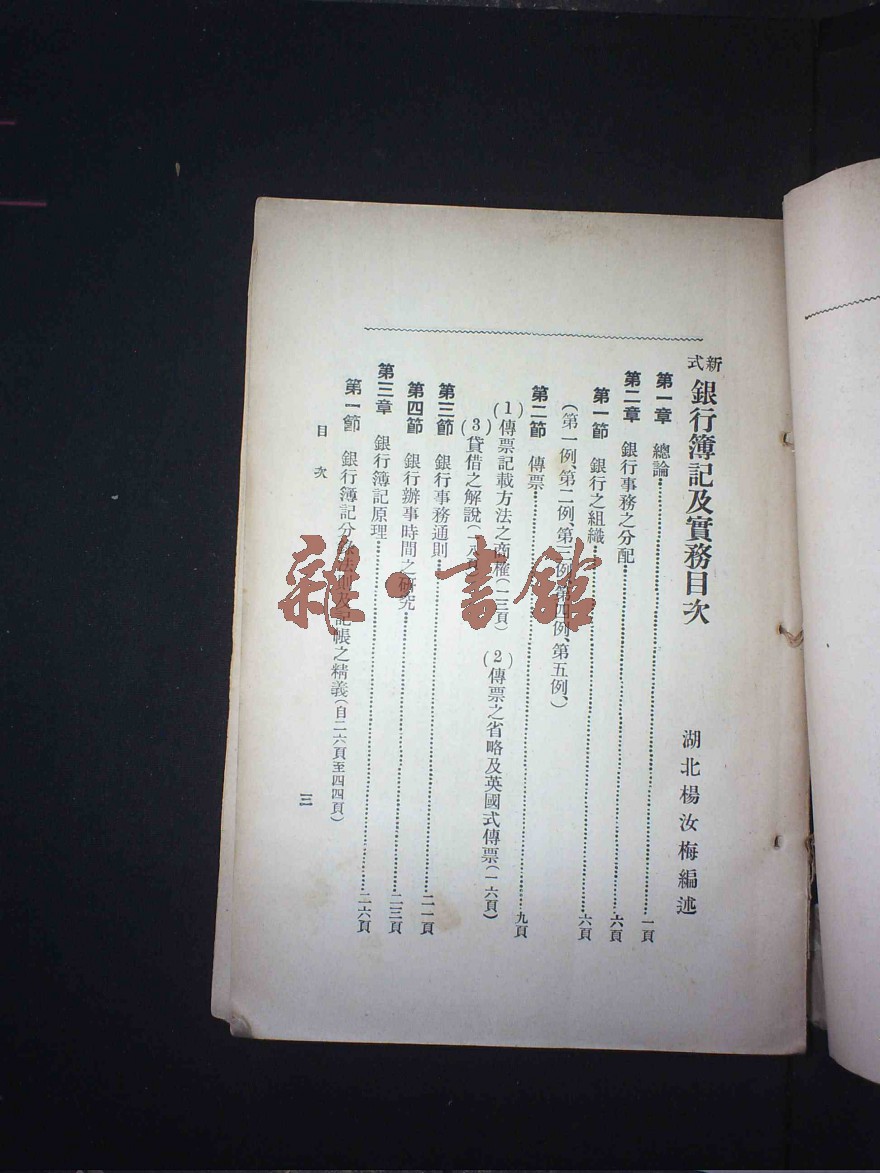 新式 銀行簿記及實務目次
湖北楊汝梅編述
第一章 總論 一頁
第二章 銀行事務之分配 六頁
第一節 銀行之組織 六頁
(第一例、第二例、第三例、第四例、第五例、)
第二節 傳票 九頁
(1)傳票記載方法之商榷(一三頁) (2)傳票之省略及英國式傳票(一六頁)
(3)貸借之解說(一八頁)
第三節 銀行事務通則 二一頁
第四節 銀行辦事時間之研究 二三頁
第三章 銀行簿記原理 二六頁
第一節 銀行簿記分錄法則及記帳之精義(自二六頁至四四頁)
目次
三
雜·書館